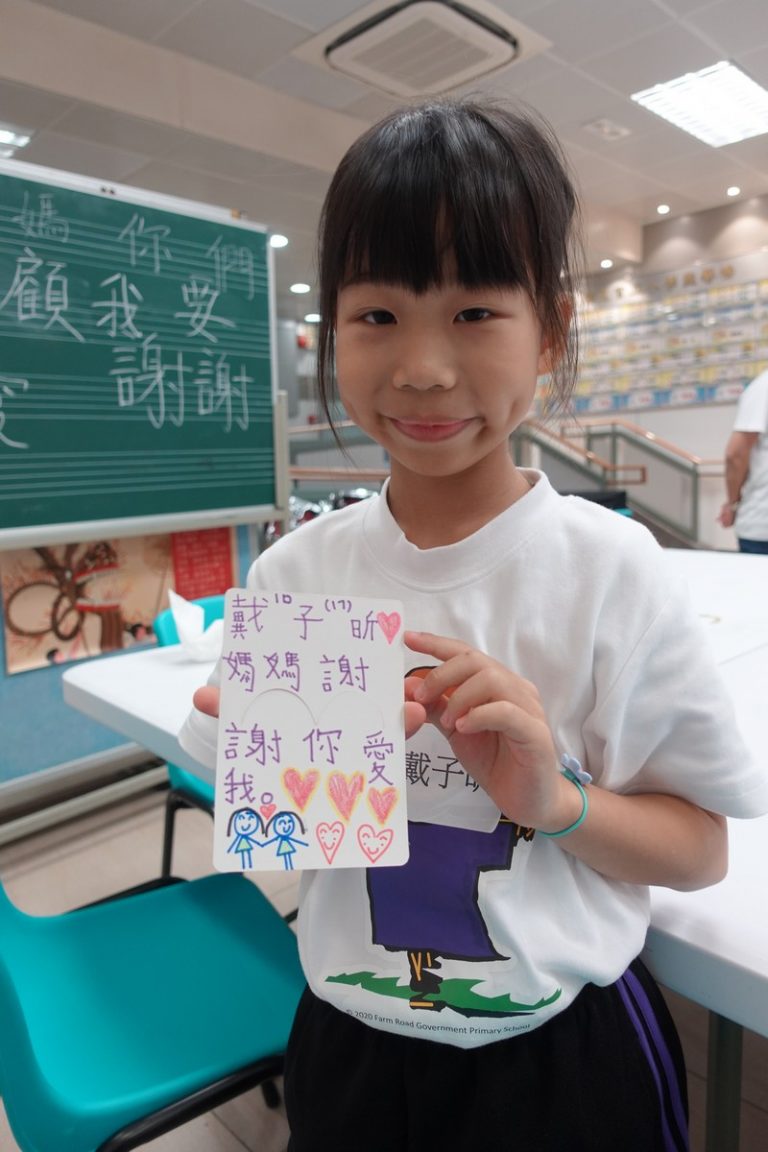 媽 你 們
顧 我 要
謝謝
戴 子 (17) 昕
媽媽 謝
謝 你 愛
我。
戴子
© 2020 Farm Road Government Primary School